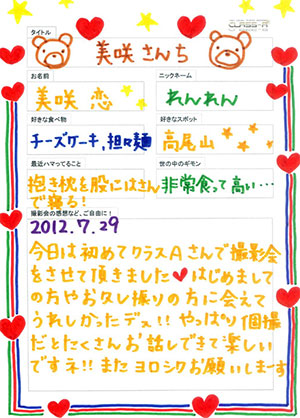 CLASS-A
タイトル
美咲さんち
お名前
ニックネーム
美咲 恋
れんれん
好きな食べ物
好きなスポット
チーズケーキ,担々麺
高尾山
最近ハマってること
世の中のギモン
抱き枕を股にはさん
で寝る!
非常食って高い…
撮影会の感想など、ご自由に!
2012.7.29
今日は初めてクラスAさんで撮影会
をさせて頂きました♥はじめまして
の方やお久し振りの方に会えて
うれしかったデス!! やっぱり個撮
だとたくさんお話しできて楽しい
ですネ!! また ヨロシクお願いしまーす